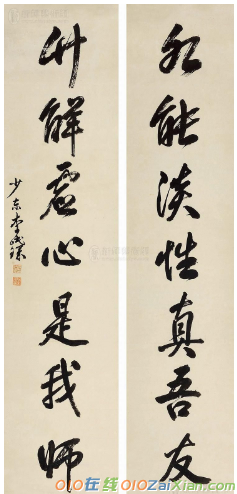 水能淡性真吾友
竹解虚心是我师
少东李成琛
010在线 010ZaiXian.com